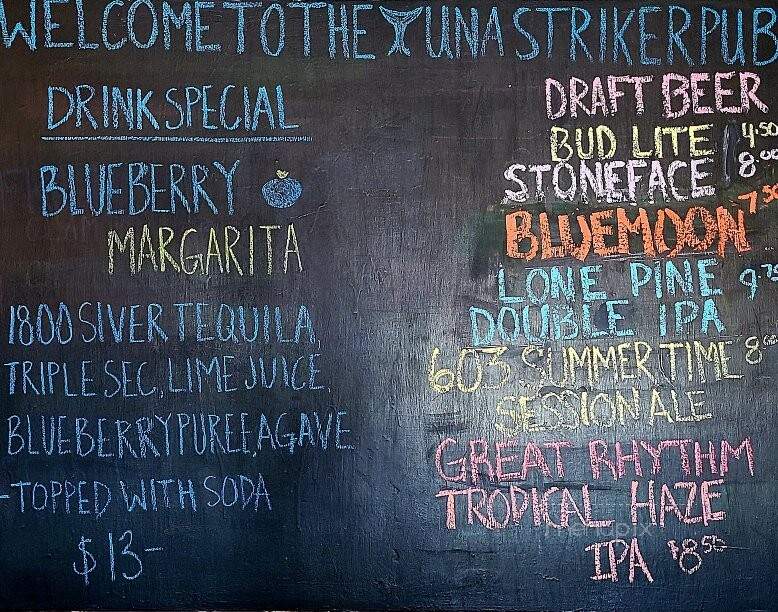 WELCOME TO THE TUNA STRIKER PUB
DRINK SPECIAL
BLUEBERRY
MARGARITA
1800 SIVER TEQUILA,
TRIPLE SEC, LIME JUICE,
BLUEBERRY PUREE, AGAVE
-TOPPED WITH SODA
$13-
DRAFT BEER
BUD LITE 4.50
STONEFACE 8.00
BLUEMOON 7.50
LONE PINE 9.75
DOUBLE IPA
603 SUMMER TIME 8.00
SESSION ALE
GREAT RHYTHM
TROPICAL HAZE
IPA $8.50